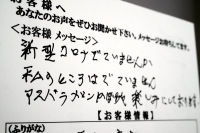 お客様へ
あなたのお声をぜひお聞かせ下さい。メッセージお待ちしてます。
<お客様 メッセージ>
新型コロナでていませんか
私のところはでていません
アスパラ 楽しみにしております
【お客様情報】
(ふりがな)